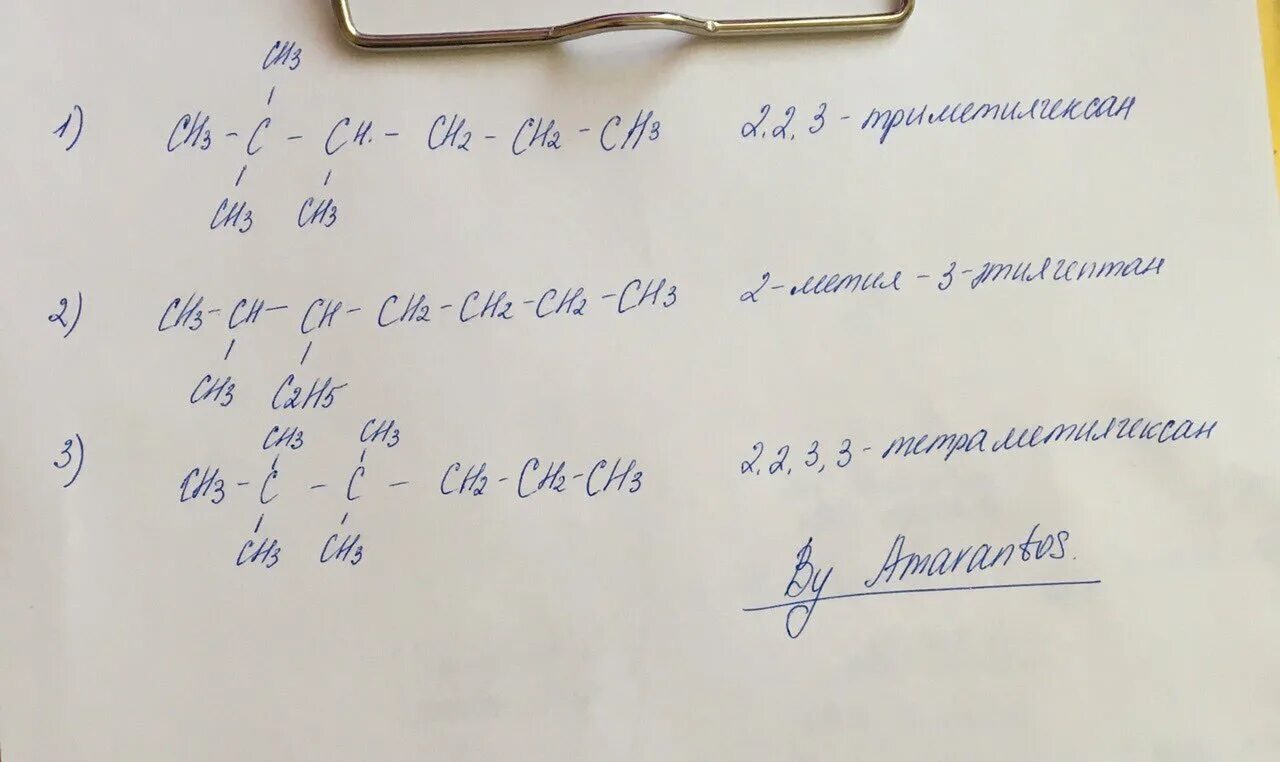 CH3
1) CH3 - C - CH - CH2 - CH2 - CH3 2,2,3 - триметилгексан
CH3 CH3
2) CH3 - CH - CH - CH2 - CH2 - CH2 - CH3 2-метил-3-этилгептан
CH3 C2H5
CH3 CH3
3) CH3 - C - C - CH2 - CH2 - CH3 2,2,3,3 - тетраметилгексан
CH3 CH3
By Amarantos.